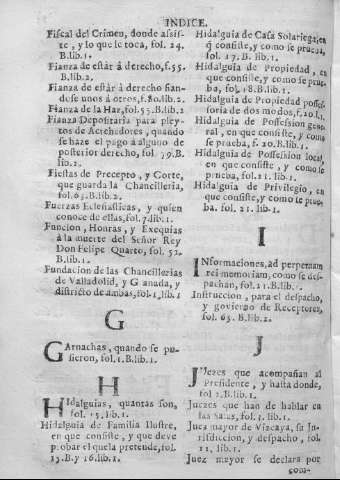 INDICE.
Fiscal del Crimen, donde assis-
te, y lo que le toca, fol. 24.
B.lib.1.
Fianza de estàr à derecho, f.55.
B.lib.2.
Fianza de estàr à derecho fian-
dose unos à otros, f.80.lib.2.
Fianza de la Haz, fol.55.B.lib.2
Fianza Depositaria para pley-
tos de Acrehedores, quando
se haze el pago à alguno de
posterior derecho, fol. 79.B.
lib.2.
Fiestas de Precepto, y Corte,
que guarda la Chancilleria,
fol.65.B.lib.2.
Fuerzas Eclesiasticas, y quien
conoce de ellas, fol.7.lib.1.
Funcion, Honras, y Exequias
à la muerte del Señor Rey
Don Felipe Quarto, fol. 52.
B.lib.1.
Fundacion de las Chancillerias
de Valladolid, y Granada, y
distrito de ambas, fol.1.lib.1
G
GArnachas, quando se pu-
sieron, fol.1.B.lib.1.
H
HIdalguias, quantas son,
fol. 15.lib.1.
Hidalguia de Familia Ilustre,
en que consiste, y que deve
probar el que la pretende, fol.
15.B.y 16.lib.1.
Hidalguia de Casa Solariega, en
q̃ consiste, y como se prueba,
fol. 17.B. lib.1.
Hidalguia de Propiedad, en
que consiste, y como se prue-
ba, fol.18.B.lib.1.
Hidalguia de Propiedad posses-
soria de dos modos, f.20.l.1.
Hidalguia de Possession gene-
ral, en que consiste, y como
se prueba, f. 20.B.lib.1.
Hidalguia de Possession local,
en que consiste, y como se
prueba, fol.21. lib.1.
Hidalguia de Privilegio, en
que consiste, y como se prue-
ba. fol. 21. lib.1.
I
INformaciones, ad perpetuam
rei memoriam, como se des-
pachan, fol.21.B.lib.1.
Instruccion, para el despacho,
y govierno de Receptores,
fol. 65. B.lib.2.
J
JUezes que acompañan al
Presidente, y hasta donde,
fol 2.B.lib.1.
Juezes que han de hablar en
las Salas, fol.1. lib.1.
Juez mayor de Vizcaya, su Ju-
risdiccion, y despacho, fol.
11. lib.1.
Juez mayor se declara por
com-